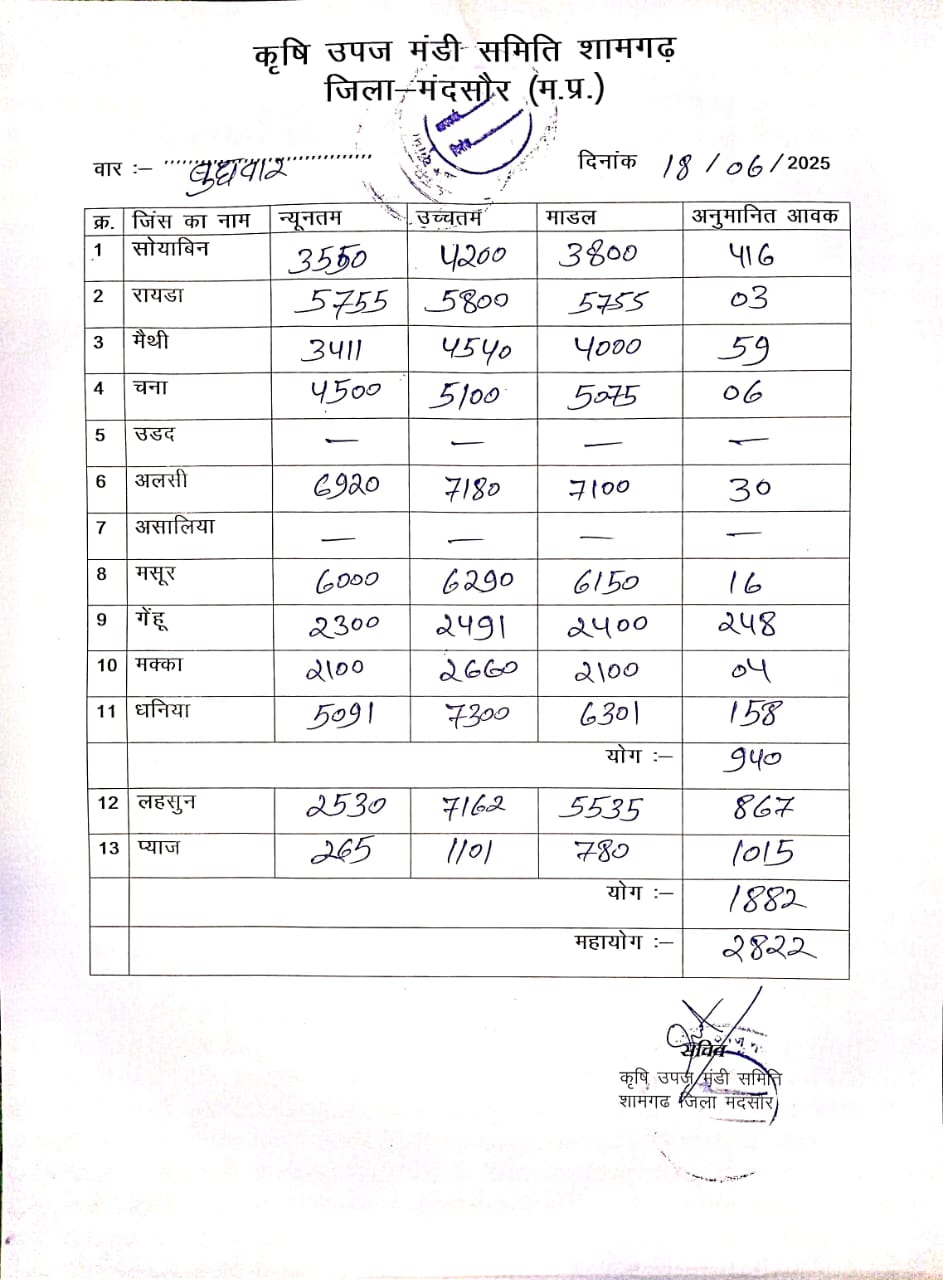 कृषि उपज मंडी समिति शामगढ़
जिला–मंदसौर (म.प्र.)
वार :– बुधवार दिनांक 18/06/2025
क्र. जिंस का नाम न्यूनतम उच्चतम माडल अनुमानित आवक
1 सोयाबिन 3550 4200 3800 416
2 रायडा 5755 5800 5755 03
3 मैथी 3411 4540 4000 59
4 चना 4500 5100 5075 06
5 उडद — — — —
6 अलसी 6920 7180 7100 30
7 असालिया — — — —
8 मसूर 6000 6290 6150 16
9 गेंहू 2300 2491 2400 248
10 मक्का 2100 2660 2100 04
11 धनिया 5091 7300 6301 158
योग :– 940
12 लहसुन 2530 7162 5535 867
13 प्याज 265 1101 780 1015
योग :– 1882
महायोग :– 2822
सचिव
कृषि उपज मंडी समिति
शामगढ जिला मंदसौर